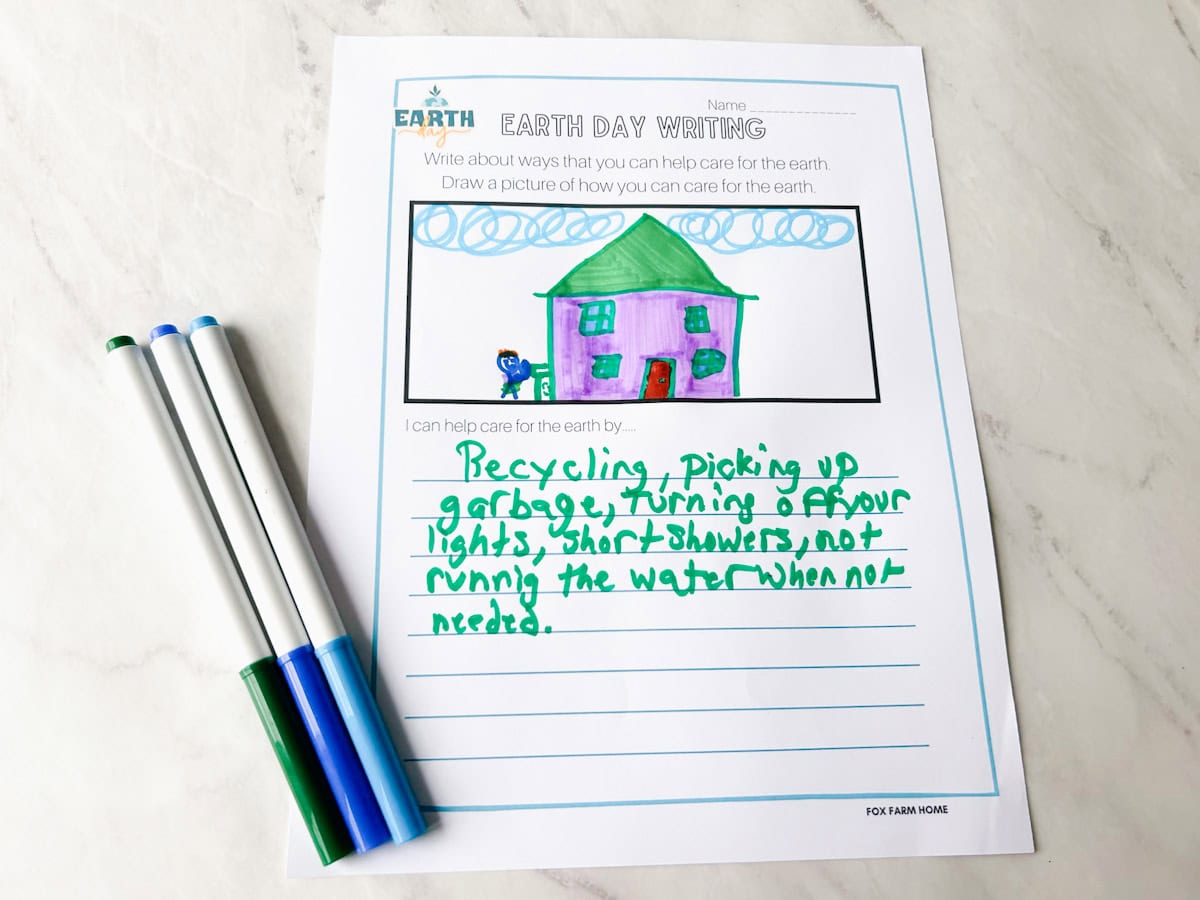 EARTH
day
Name _ _ _ _ _ _ _ _ _ _ _ _ _
EARTH DAY WRITING
Write about ways that you can help care for the earth.
Draw a picture of how you can care for the earth.
I can help care for the earth by.....
Recycling, picking up
garbage, Turning off your
lights, short showers, not
runnig the water when not
needed.
FOX FARM HOME